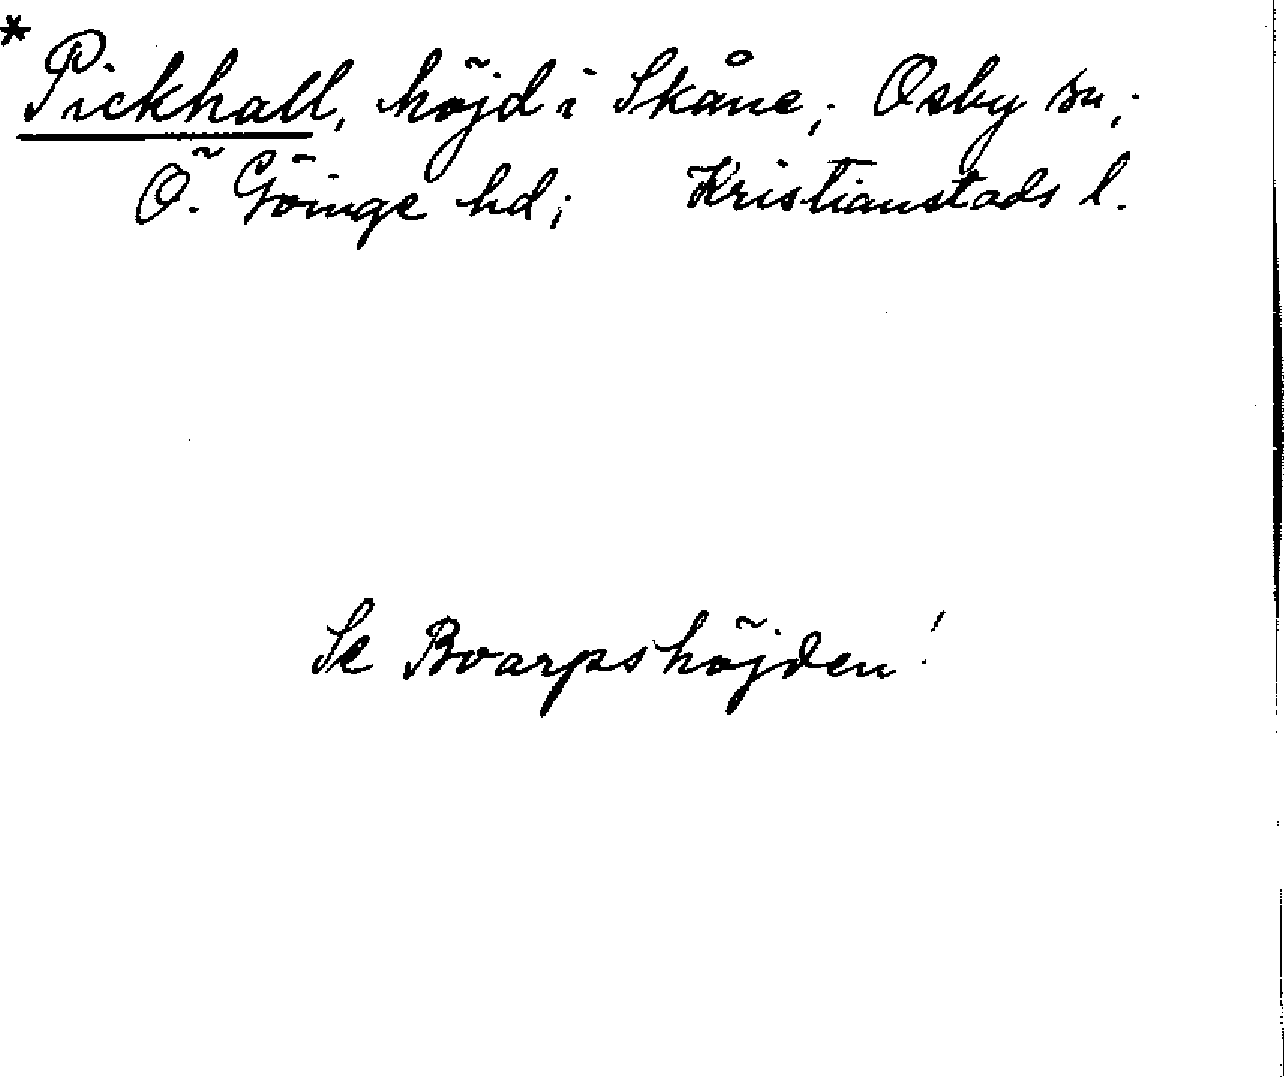 * Pickhall, höjd i Skåne; Osby sn;
Ö. Göinge hd; Kristianstads l.
Se Boarpshöjden!